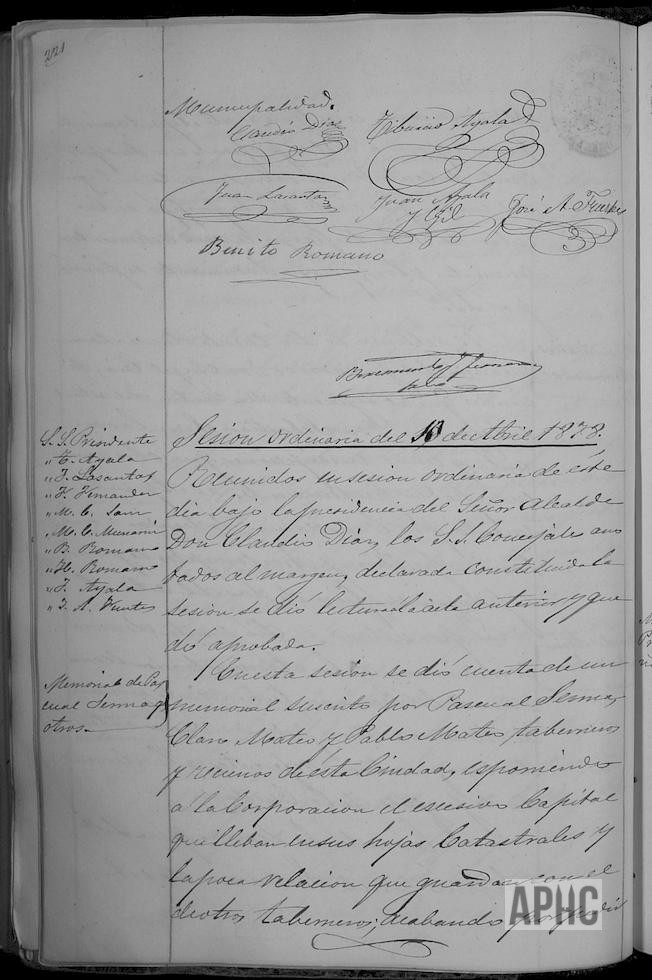 221
Municipalidad.
Claudio Diaz
Tiburcio Ayala
Juan Lasanta
Juan Ayala
y Gil
José A. Fuertes
Benito Romano
Sesion ordinaria del 10 de Abril 1878.
S. S. Presidente
" T. Ayala
" J. Lasanta
" F. Fernandez
" M. C. Sanz
" M. C. Munarri
" B. Romano
" H. Romano
" J. Ayala
" J. A. Fuertes
Reunidos en sesion ordinaria de éste
dia bajo la presidencia del Señor Alcalde
Don Claudio Diaz, los S. S. Concejales ano
tados al margen, declarada constituida la
sesion se dió lectura á la acta anterior y que
dó aprobada.
Memorial de Pas
cual Serma y
otros.
En esta sesion se dió cuenta de un
memorial suscrito por Pascual Serma,
Claro Mateo y Pablo Mateo taberneros
y vecinos de ésta Ciudad, esponiendo
á la Corporacion el escesivo Capital
que lleban en sus hojas Catastrales y
la poca relacion que guardan con el
de otros taberneros; acabando por pedir
APHC